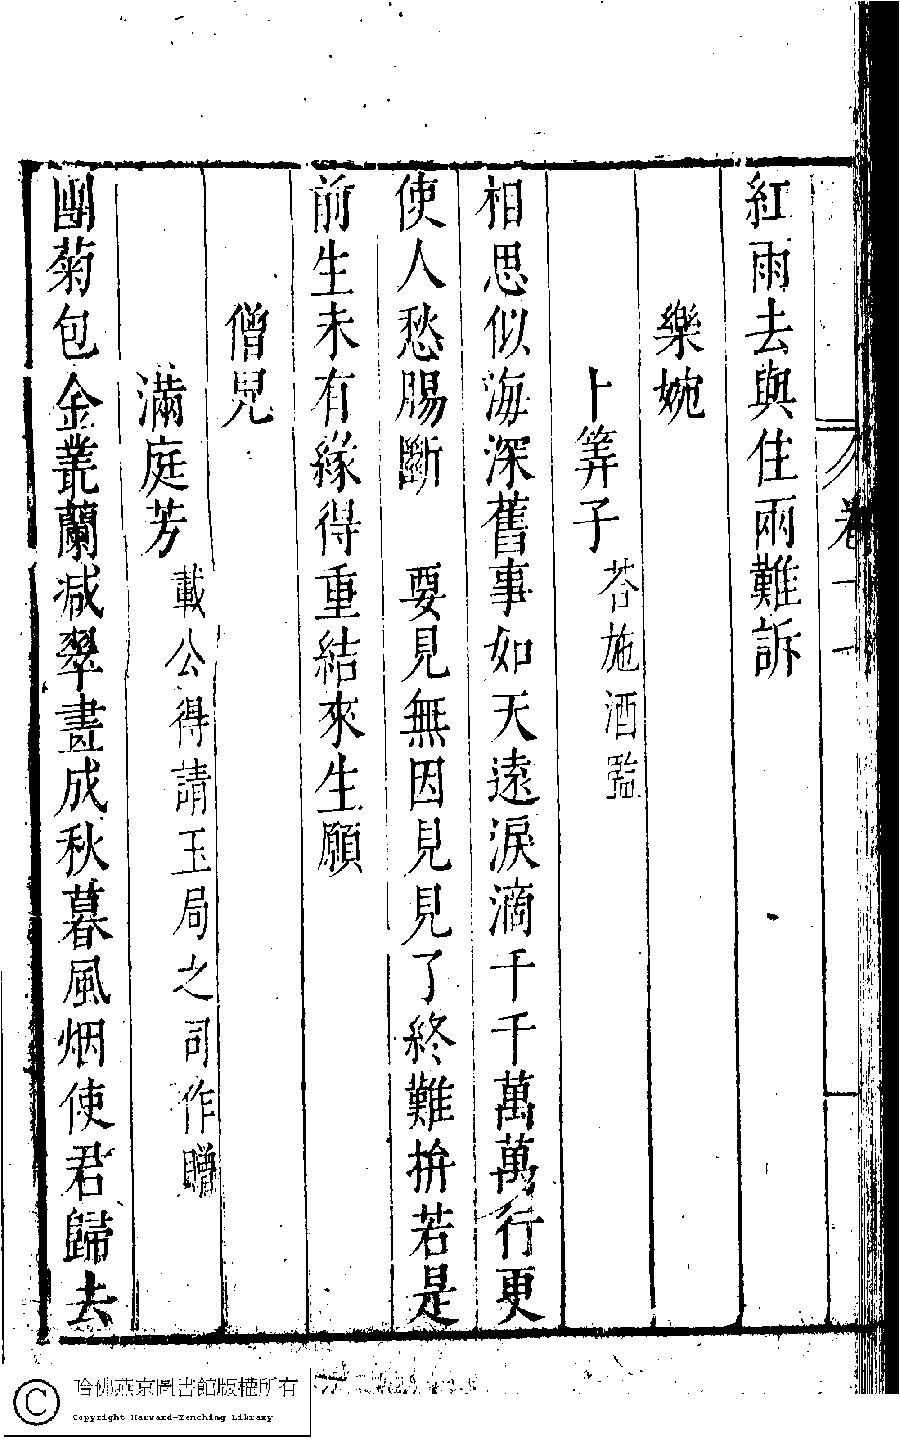 卷十一
紅雨去與住兩難訴
樂婉
卜筭子 荅施酒監
相思似海深舊事如天遠淚滴千千萬萬行更
使人愁腸斷 要見無因見見了終難拚若是
前生未有緣得重結來生願
僧兒
滿庭芳 載公得請玉局之司作贈
團菊包金叢蘭減翠畫成秋暮風烟使君歸去
哈佛燕京圖書館版權所有
Copyright Harvard-Yenching Library